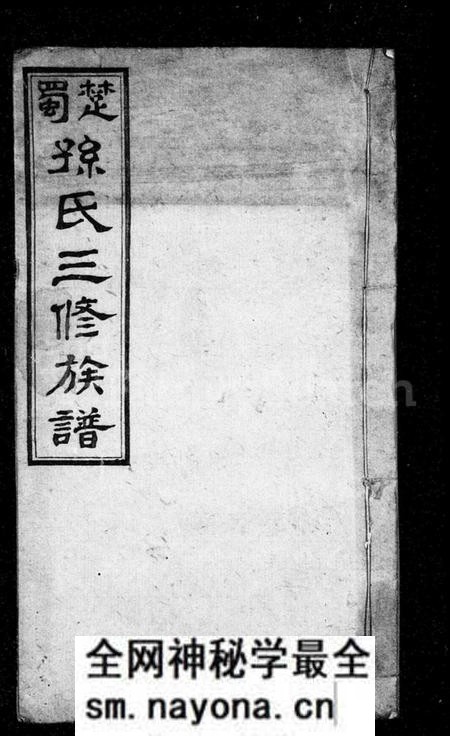 楚蜀
孫氏三修族譜
全网神秘学最全
sm.nayona.cn